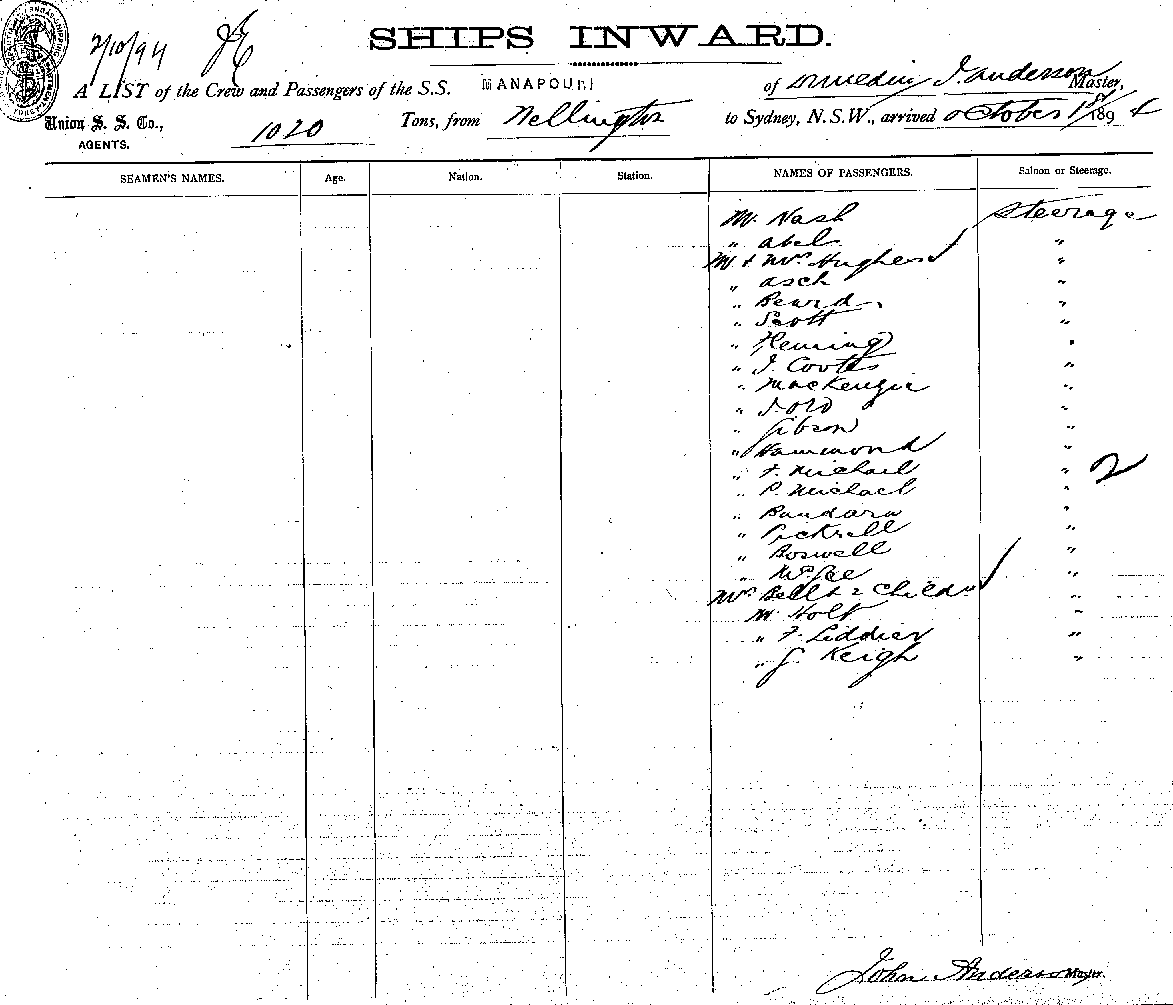 2/10/94
SHIPS INWARD.
A LIST of the Crew and Passengers of the S.S. MANAPOURI of Dunedin J. Anderson Master,
Union S. S. Co., AGENTS. 1020 Tons, from Wellington to Sydney, N.S.W., arrived October 1st 1894
SEAMEN'S NAMES. Age. Nation. Station. NAMES OF PASSENGERS. Saloon or Steerage.
Mr Nash Steerage
" Abel "
Mr & Mrs Hughes "
" Asch "
" Beard "
" Scott "
" Fleming "
" J. Cootes "
" Mackenzie "
" Ford "
" Gibson "
" Hammond "
" F. Michael " 2
" P. Michael "
" Bandara "
" Pickrell "
" Boswell "
" McGee "
Mrs Bell & 2 Child "
Mr Holt "
" F. Liddier "
" G. Keigh "
John Anderson Master.